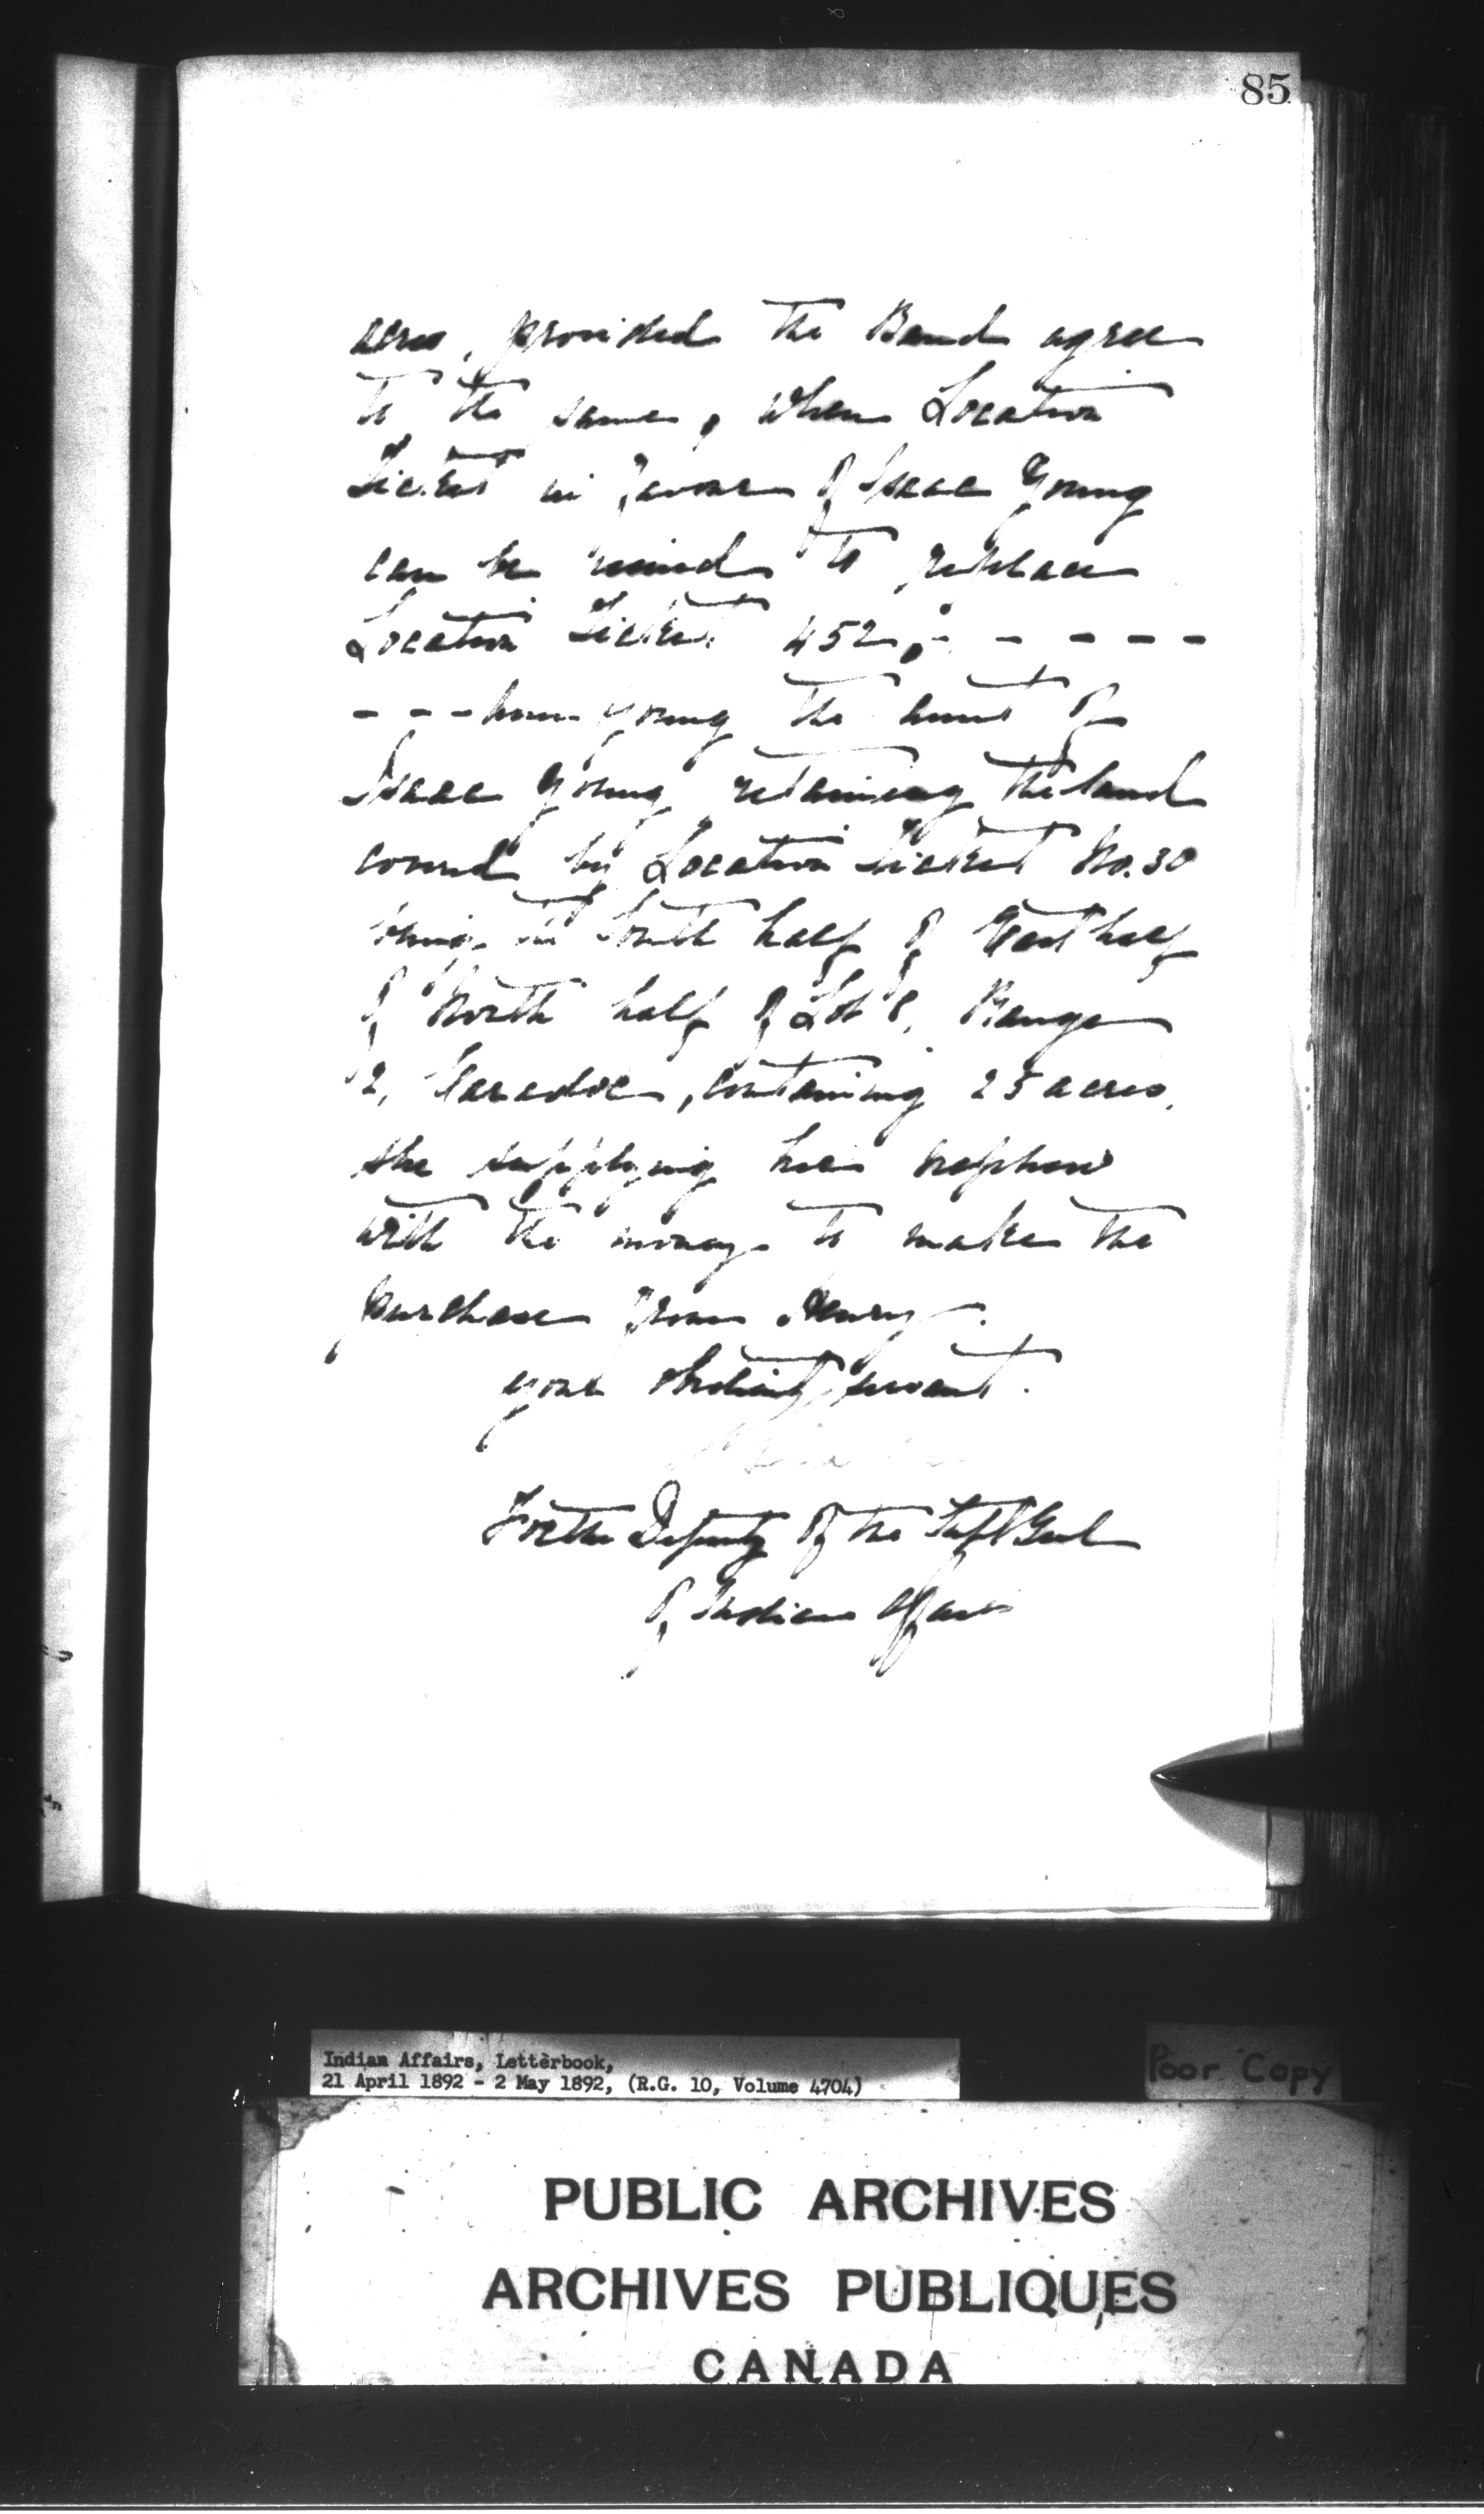 85
acres, provided the Band agree
to the same, when Location
Ticket in favour of Isaac Young
can be issued to replace
Location Ticket 452; - - - - -
- - - Young the aunt of
Isaac Young, retaining the land
covered by Location Ticket No. 30
being the South half of East half
of North half of Lot 8, Range
2, Caradoc, containing 25 acres,
she supplying her nephew
with the money to make the
purchase from Henry.
your obedient servant.
For the Deputy of the Supt Genl
of Indian Affairs
Indian Affairs, Letterbook,
21 April 1892 - 2 May 1892, (R.G. 10, Volume 4704)
Poor Copy
PUBLIC ARCHIVES
ARCHIVES PUBLIQUES
CANADA